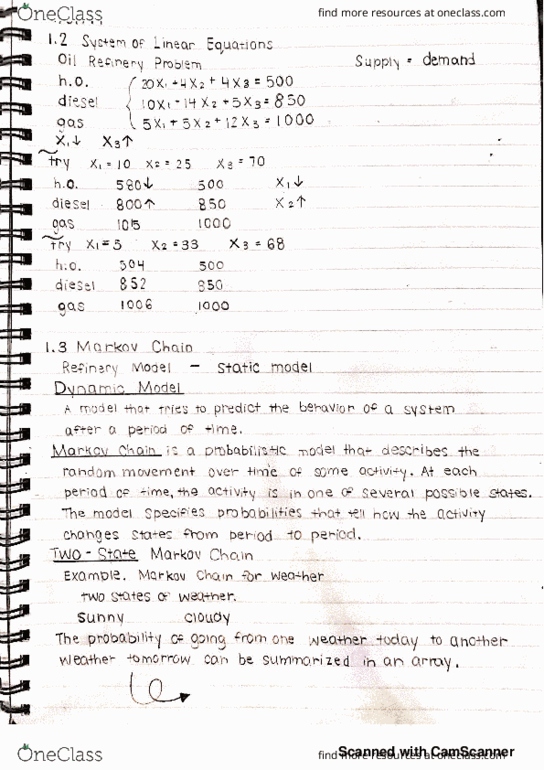 OneClass
find more resources at oneclass.com
1.2 System of Linear Equations
Oil Refinery Problem Supply = demand
h.o. 20X₁ + 4X₂ + 4X₃ = 500
diesel 10X₁ + 14X₂ + 5X₃ = 850
gas 5X₁ + 5X₂ + 12X₃ = 1000
X₁↓ X₃↑
try X₁ = 10 X₂ = 25 X₃ = 70
h.o. 580↓ 500 X₁↓
diesel 800↑ 850 X₂↑
gas 1015 1000
Try X₁ = 5 X₂ = 33 X₃ = 68
h.o. 504 500
diesel 852 850
gas 1006 1000
1.3 Markov Chain
Refinery Model - static model
Dynamic Model
A model that tries to predict the behavior of a system
after a period of time.
Markov Chain is a probabilistic model that describes the
random movement over time of some activity. At each
period of time, the activity is in one of several possible states.
The model specifies probabilities that tell how the activity
changes states from period to period.
Two-State Markov Chain
Example. Markov Chain for weather
two states of weather.
sunny cloudy
The probability of going from one weather today to another
weather tomorrow can be summarized in an array.
OneClass
find more resources at oneclass.com
Scanned with CamScanner